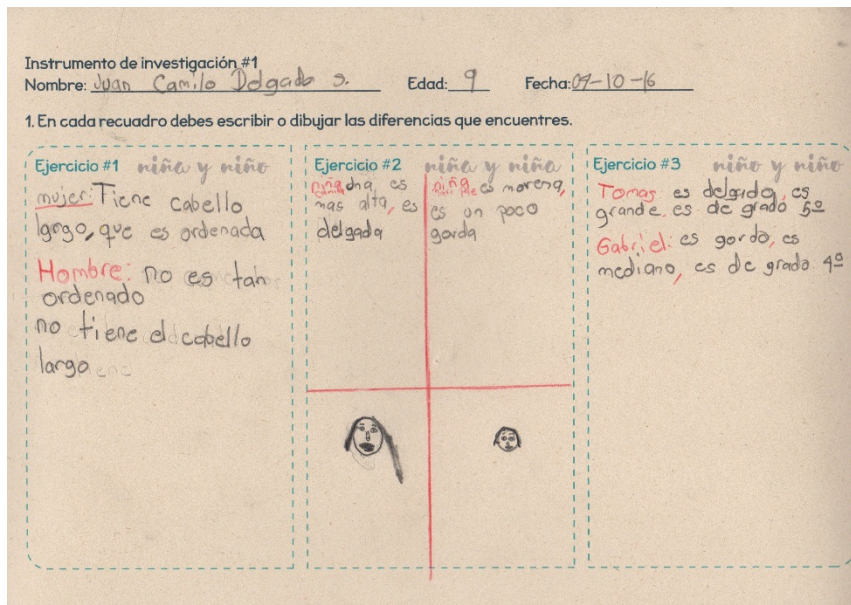 Instrumento de investigación #1
Nombre: Juan Camilo Delgado s. Edad: 9 Fecha: 09-10-16
1. En cada recuadro debes escribir o dibujar las diferencias que encuentres.
Ejercicio #1 niña y niño
mujer: Tiene cabello
largo, que es ordenada
Hombre: no es tan
ordenado
no tiene el cabello
largo
Ejercicio #2 niña y niña
niña es
mas alta, es
delgada
niña es morena,
es un poco
gorda
Ejercicio #3 niño y niño
Tomas es delgado, es
grande. es de grado 5º
Gabriel: es gordo, es
mediano, es de grado 4º